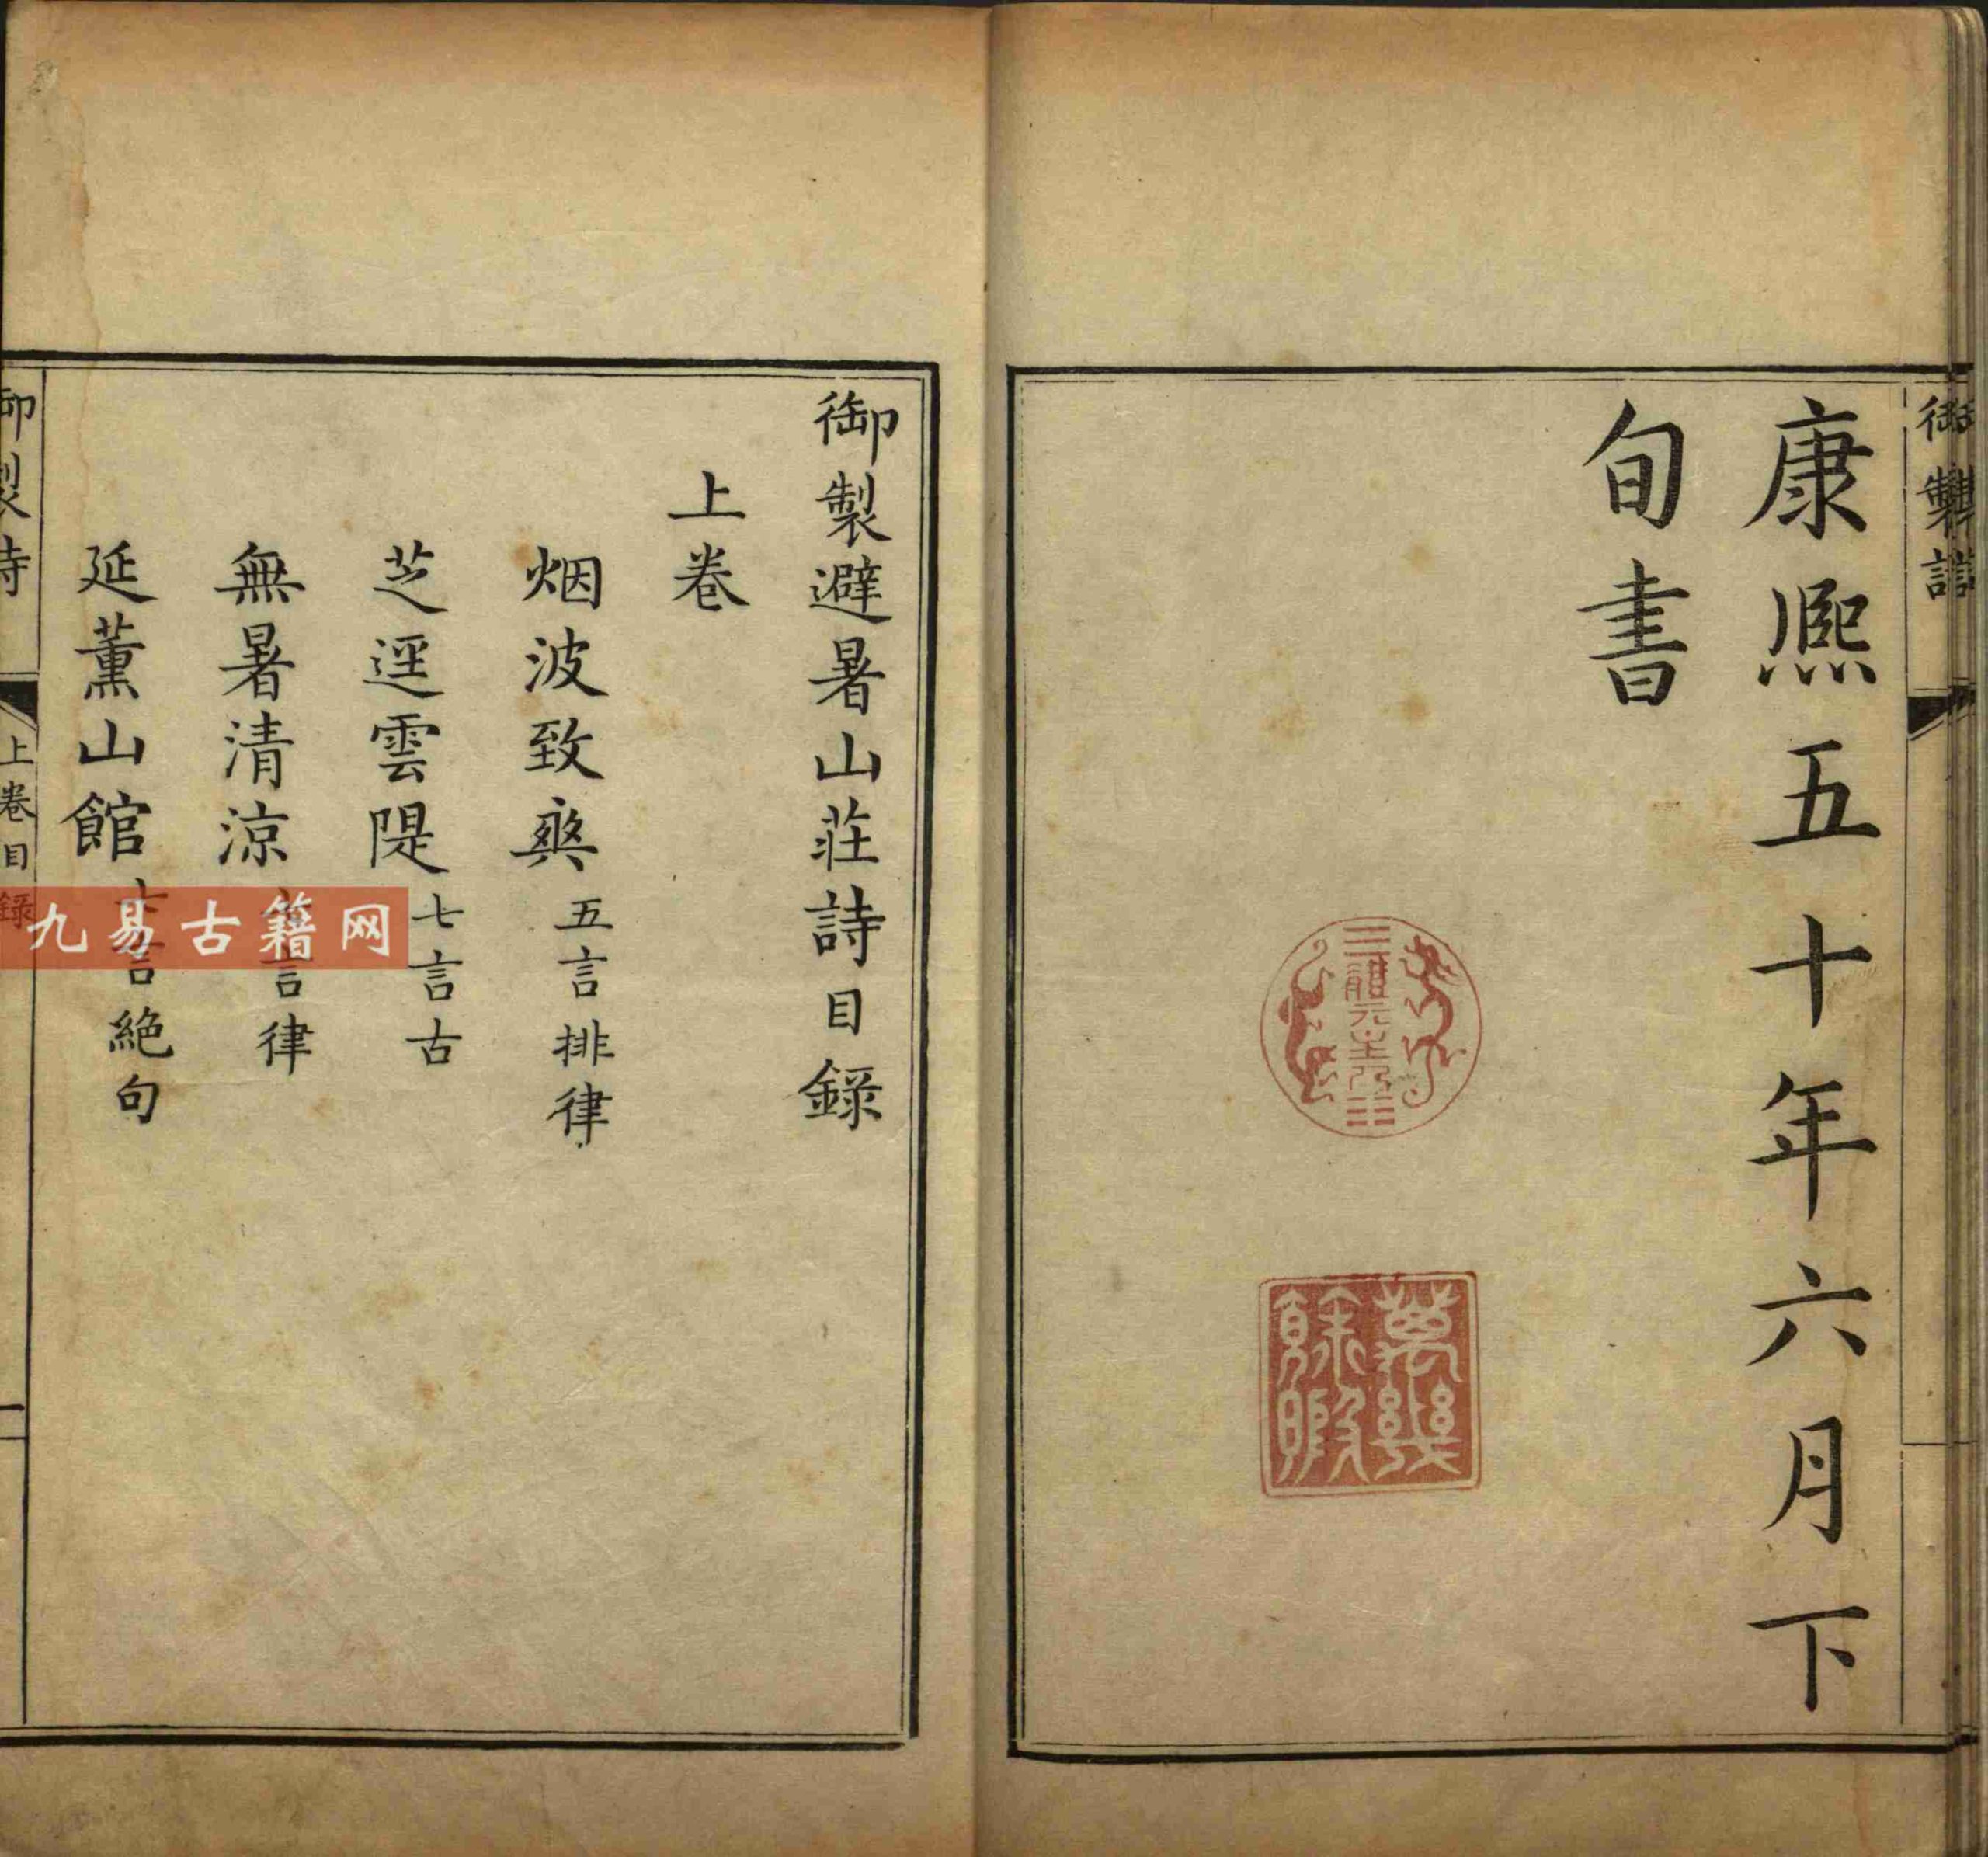 御製詩
康熙五十年六月下
旬書
體元主人
萬幾
餘暇
御製避暑山莊詩目錄
上卷
烟波致爽 五言排律
芝逕雲隄 七言古
無暑清涼 言律
延薰山館 七言絶句
御製詩 上卷目錄 一
九易古籍网